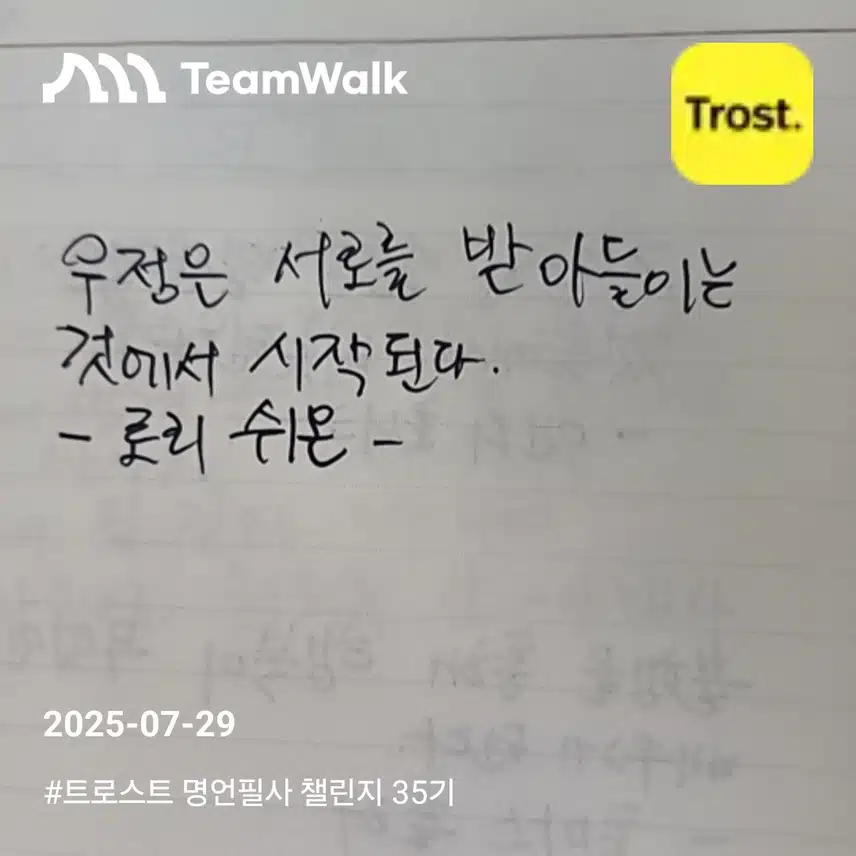 TeamWalk
Trost.
우정은 서로를 받아들이는
것에서 시작된다.
- 로리 쉬몬 -
2025-07-29
#트로스트 명언필사 챌린지 35기